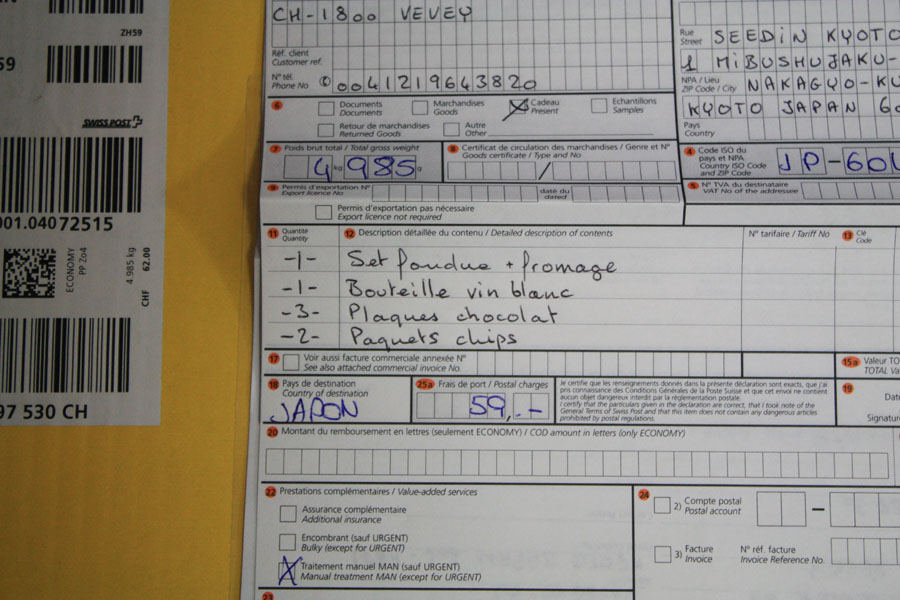 ZH59
59
SWISS POST
001.04072515
ECONOMY
PP Zo4
4.985 kg
CHF 62.00
97 530 CH
CH-1800 VEVEY
Réf. client
Customer ref.
N° tél.
Phone No
0041219643820
Rue
Street
SEEDIN KYOTO
1 MIBUSHUJAKU-
NPA / Lieu
ZIP Code / City
NAKAGYO-KU
KYOTO JAPAN 60
Pays
Country
6
Documents
Documents
Marchandises
Goods
Cadeau
Present
Echantillons
Samples
Retour de marchandises
Returned Goods
Autre
Other
7 Poids brut total / Total gross weight
4 kg 985 g
8 Certificat de circulation des marchandises / Genre et N°
Goods certificate / Type and No
/
4 Code ISO du
pays et NPA
Country ISO Code
and ZIP Code
JP-60
9 Permis d'exportation N°
Export licence No
daté du
dated
5 N° TVA du destinataire
VAT No of the addressee
Permis d'exportation pas nécessaire
Export licence not required
11 Quantité
Quantity
12 Description détaillée du contenu / Detailed description of contents
N° tarifaire / Tariff No
13 Clé
Code
-1- Set fondue + fromage
-1- Bouteille vin blanc
-3- Plaques chocolat
-2- Paquets chips
17 Voir aussi facture commerciale annexée N°
See also attached commercial invoice No.
15a Valeur TO
TOTAL Va
18 Pays de destination
Country of destination
JAPON
25a Frais de port / Postal charges
59,.-
Je certifie que les renseignements donnés dans la présente déclaration sont exacts, que j'ai
pris connaissance des Conditions Générales de la Poste Suisse et que cet envoi ne contient
aucun objet dangereux interdit par la réglementation postale.
I certify that the particulars given in the declaration are correct, that I took note of the
General Terms of Swiss Post and that this item does not contain any dangerous articles
prohibited by postal regulations.
19
Date
Signature
20 Montant du remboursement en lettres (seulement ECONOMY) / COD amount in letters (only ECONOMY)
22 Prestations complémentaires / Value-added services
Assurance complémentaire
Additional insurance
Encombrant (sauf URGENT)
Bulky (except for URGENT)
Traitement manuel MAN (sauf URGENT)
Manual treatment MAN (except for URGENT)
24
2) Compte postal
Postal account
3) Facture
Invoice
N° réf. facture
Invoice Reference No.
23